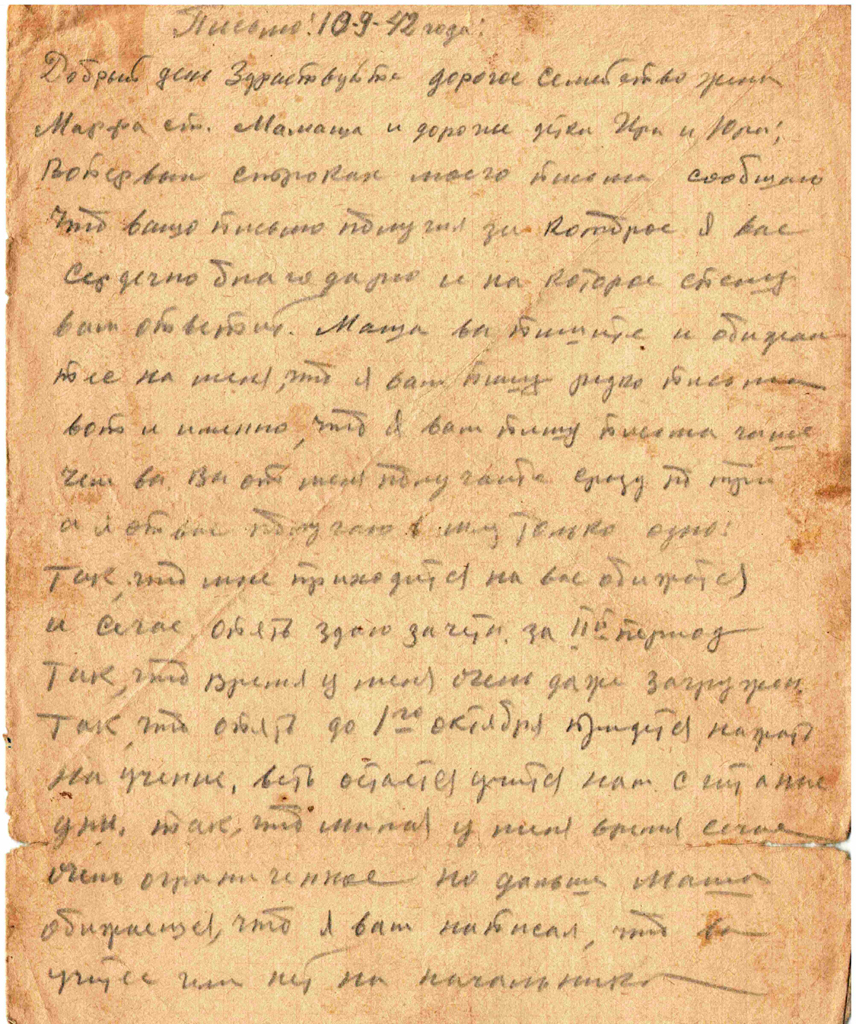 Письмо! 10-9-42 года!
Добрый день Здраствуйте дорогое семейство жена
Марфа ст. Мамаша и дорогие детки Ира и Юра!,
Вопервых строках моего писма сообщаю
что ващо письмо получил за которое я вас
Сердечно благодарю и на которое спешу
вам ответит. Маша ви пишите и обижаи
тес на меня, что я вам пишу редко писма
вот и именно, что я вам пишу писма чаще
чем ви. Ви от меня получаите сразу по три
а я от вас получаю только одно!
Так, что мне приходится на вас обижатся
и Сечас опять здаю зачети за IIй период
Так, что время у меня очень даже загружен.
Так, что опять до 1го октября придется нажать
на учение, веть остается учится нам считание
дни, так, что магая у меня время сечас
очень ограниченное но дальше Маша
обижаешся, что я вам написал, что ви
учитес или нет на начальника